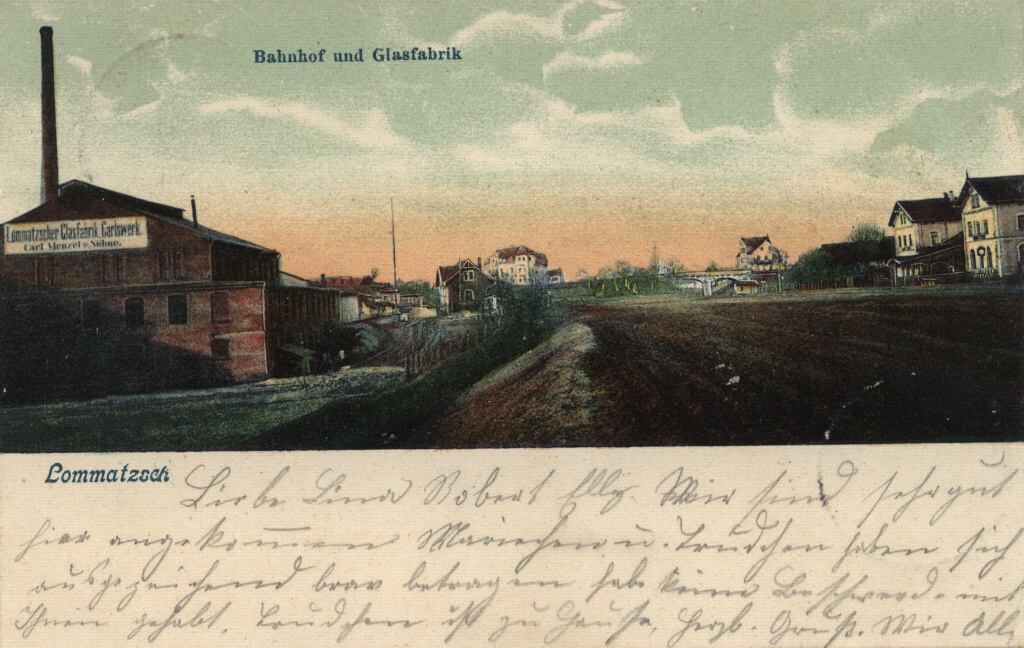 Bahnhof und Glasfabrik
Lommatzscher Glasfabrik Carlswerk.
Carl Menzel & Söhne.
Lommatzsch
Liebe Lina Robert Elly. Wir sind sehr gut
hier angekommen Mariechen u. Trudchen haben sich
ausgezeichend brav betragen habe keine Beschwerde mit
Ihnen gehabt, Trudchen ist zu Hause, Herzl. Gruß. Wir Alle